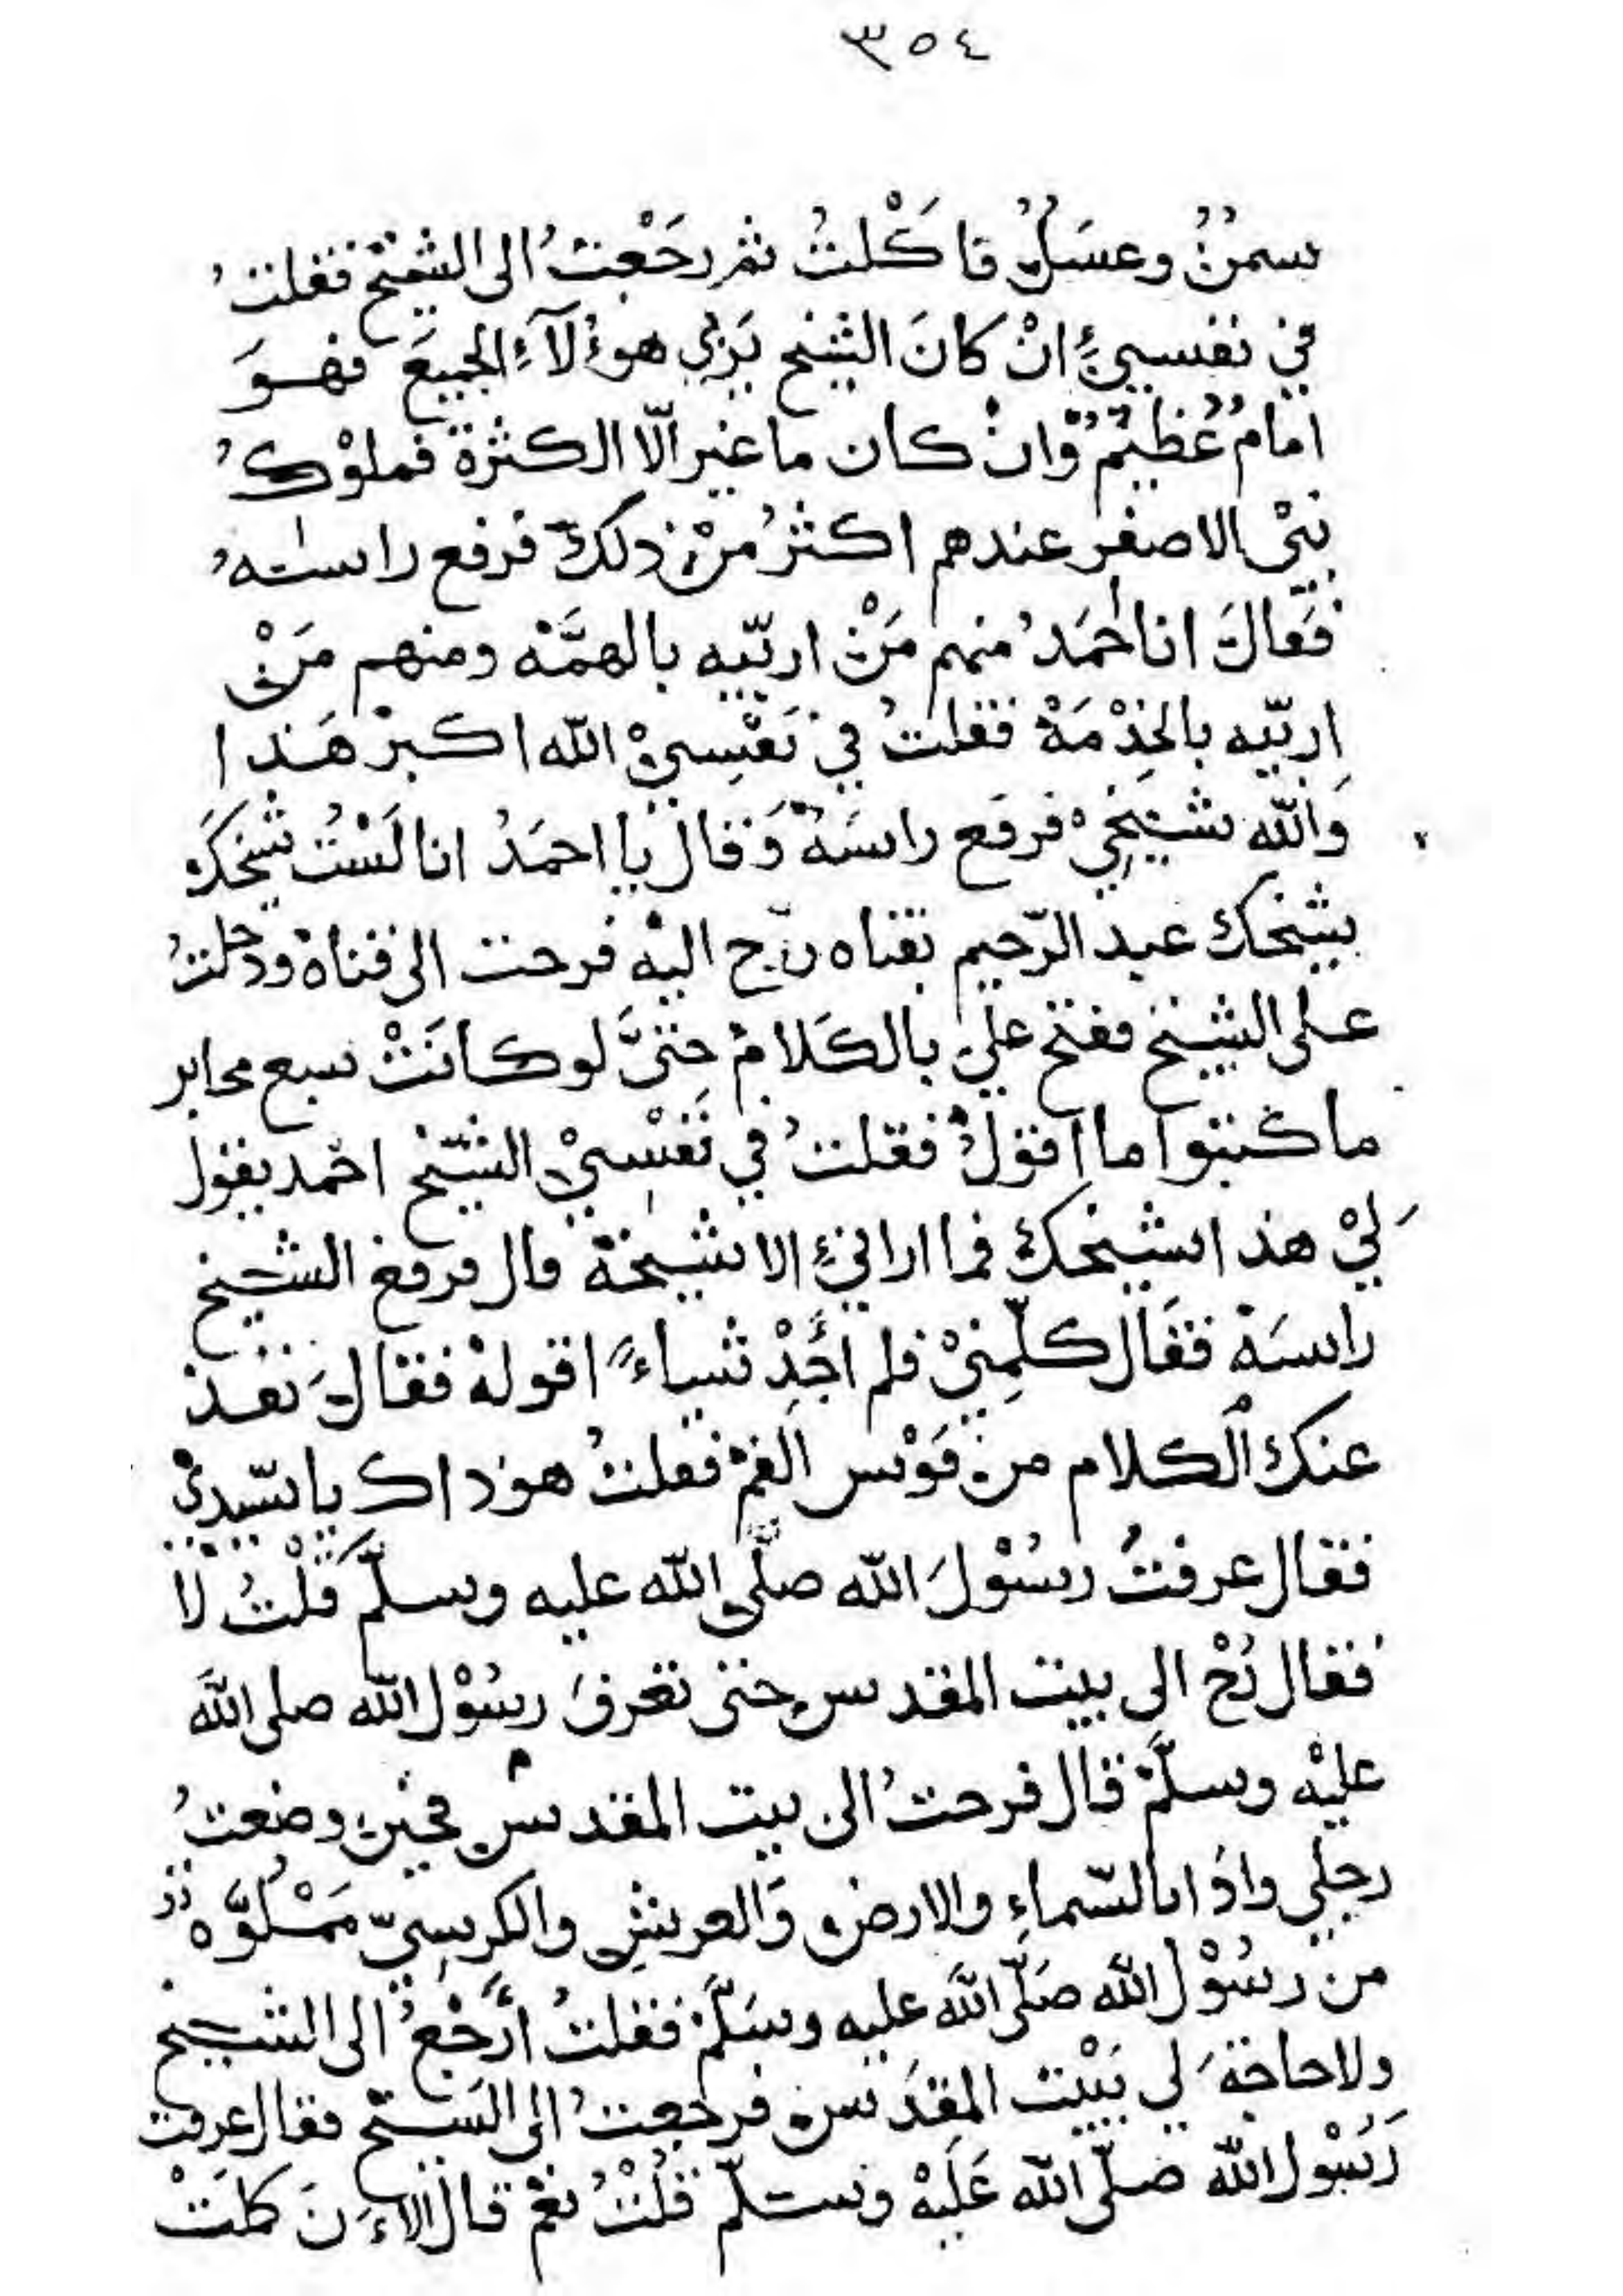 ٣٥٤
سمنٌ وعسَلٌ فاكَلتُ ثم رجَعْتُ الى الشيخ فقلتُ
في نفسيْ انْ كانَ الشيخ يَربي هؤلآءِ الجميعَ فهوَ
امامٌ عظيمٌ وانْ كان ما غير الّا الكثرة فملوْكُ
بنيْ الاصفر عندهم اكثرُ منْ ذلكَ فرفع راسهُ
فقالَ انا احمَدُ منهم مَنْ اربّيه بالهمَّه ومنهم مَنْ
اربّيه بالخِدْمَةْ فقلتُ في نَفْسِيْ الله اكبرْ هَذا
وَالله شيخِيْ فرفع راسَهُ وَقالْ يا احمَدُ انا لَسْتُ شيخكَ
شيخك عبد الرّحيم بقناه رح اليْه فرحت الى قناهْ ودخلتُ
على الشيخ ففتح عليَ بالكَلامْ حتىَّ لو كانَتْ سبع محابر
ما كتبوا ما اقولْ فقلتُ في نَفْسِيْ الشيخ احمد يقول
لَيْ هذا شيخك فما ارانيْ الا شيخهْ قال فرفع الشيخ
راسَهْ فقَال كلّمِنيْ فلم اجِدْ شياءً اقولهْ فقالَ نفذ
عنك الكلام من قَوْس الفمْ فقلتُ هو ذاك يا سيّديْ
فقال عرفتُ رسُوْلَ الله صلّى الله عليه وسلّمْ قَلْتُ لَا
فقال رُحْ الى بيت المقدسِ حتى تعرفَ رسُوْل الله صلى اللهَ
عليْه وسلّمْ قال فرحتُ الى بيت المقدس فحين وضعتُ
رجلي واذا بالسّماءِ والارضِ وَالعرشِ والكرسيّ مَمْلُوَّه
من رسُوْل الله صَلّى اللهَ عليه وسَلّمْ فقلتُ أَرْجَعُ الى الشيخ
ولا حاجةَ لي بَيْت المقدَس فرجعتُ الى الشيخ فقال عرفت
رَسُوْل الله صلّى الله عَلَيْه وسلّم قُلْتُ نعْم قال الآءنَ كملَتْ